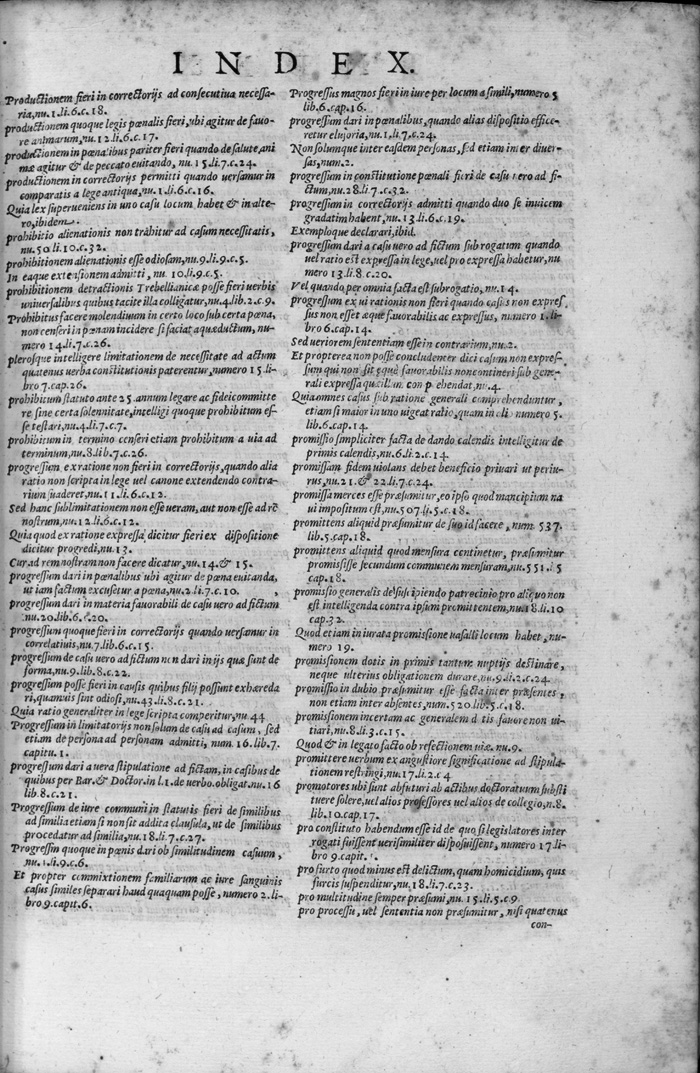 INDEX.
Productionem fieri in correctorijs ad consecutiua necessa-
ria, nu. 1. li. 6. c. 18.
productionem quoque legis pœnalis fieri, ubi agitur de fauo-
re animarum, nu. 12. li. 6. c. 17.
productionem in pœnalibus pariter fieri quando de salute, ani
mæ agitur & de peccato euitando, nu. 15. li. 7. c. 24.
productionem in correctorijs permitti quando uersamur in
comparatis a lege antiqua, nu. 1. li. 6. c. 16.
Quia lex superueniens in uno casu locum habet & in alte-
ro, ibidem.
prohibitio alienationis non trahitur ad casum necessitatis,
nu. 50. li. 10. c. 32.
prohibitionem alienationis esse odiosam, nu. 9. li. 9. c. 5.
In eaque extensionem admitti, nu. 10. li. 9. c. 5.
prohibitionem detractionis Trebellianicæ posse fieri uerbis
uniuersalibus quibus tacite illa colligatur, nu. 4. lib. 2. c. 9.
Prohibitus facere molendinum in certo loco sub certa pœna,
non censeri in pœnam incidere si faciat aquæductum, nu-
mero 14. li. 7. c. 26.
plerosque intelligere limitationem de necessitate ad actum
quatenus uerba constitutionis paterentur, numero 15. li-
bro 7. cap. 26.
prohibitum statuto ante 25. annum legare ac fideicommitte
re sine certa solennitate, intelligi quoque prohibitum es-
se testari, nu. 4. li. 7. c. 7.
prohibitum in termino censeri etiam prohibitum a uia ad
terminum, nu. 8. lib. 7. c. 26.
progressum ex ratione non fieri in correctorijs, quando alia
ratio non scripta in lege uel canone extendendo contra-
rium suaderet, nu. 11. li. 6. c. 12.
Sed hanc sublimitationem non esse ueram, aut non esse ad rē
nostrum, nu. 12. li. 6. c. 12.
Quia quod ex ratione expressa dicitur fieri ex dispositione
dicitur progredi, nu. 13.
Cur ad rem nostram non facere dicatur, nu. 14. & 15.
progressum dari in pœnalibus ubi agitur de pœna euitanda,
ut iam factum excusetur a pœna, nu. 2. li. 7. c. 10.
progressum dari in materia fauorabili de casu uero ad fictum
nu. 20. lib. 6. c. 20.
progressum quoque fieri in correctorijs quando uersamur in
correlatiuis, nu. 7. lib. 6. c. 15.
progressum de casu uero ad fictum non dari in ijs quæ sunt de
forma, nu. 9. lib. 8. c. 22.
progressum posse fieri in causis quibus filij possunt exhæreda
ri, quamuis sint odiosi, nu. 43. li. 8. c. 21.
Quia ratio generaliter in lege scripta comperitur, nu. 44
Progressum in limitatorijs non solum de casu ad casum, sed
etiam de persona ad personam admitti, num. 16. lib. 7.
capitu. 1.
progressum dari a uera stipulatione ad fictam, in casibus de
quibus per Bar. & Doctor. in l. 1. de uerbo. obligat. nu. 16
lib. 8. c. 21.
Progressum de iure communi in statutis fieri de similibus
ad similia etiam si non sit addita clausula, ut de similibus
procedatur ad similia, nu. 18. li. 7. c. 27.
Progressum quoque in pœnis dari ob similitudinem casuum,
nu. 1. li. 9. c. 6.
Et propter commixtionem familiarum ac iure sanguinis
casus similes separari haud quaquam posse, numero 2. li-
bro 9. capit. 6.
Progressus magnos fieri in iure per locum a simili, numero 5
lib. 6. cap. 16.
progressum dari in pœnalibus, quando alias dispositio effice-
retur elusoria, nu. 1. li. 7. c. 24.
Non solumque inter easdem personas, sed etiam inter diuer-
sas, num. 2.
progressum in constitutione pœnali fieri de casu uero ad fi-
ctum, nu. 28. li. 7. c. 32.
progressum in correctorijs admitti quando duo se inuicem
gradatim habent, nu. 13. li. 6. c. 19.
Exemploque declarari, ibid.
progressum dari a casu uero ad fictum subrogatum quando
uel ratio est expressa in lege, uel pro expressa habetur, nu
mero 13. li. 8. c. 20.
Vel quando per omnia facta est subrogatio, nu. 14.
progressum ex ui rationis non fieri quando casus non expres-
sus non esset æque fauorabilis ac expressus, numero 1. li-
bro 6. cap. 14.
Sed ueriorem sententiam esse in contrarium, nu. 2.
Et propterea non posse concludenter dici casum non expres-
sum qui non sit æque fauorabilis non contineri sub gene-
rali expressa illum comprehendat, nu. 4.
Quia omnes casus sub ratione generali comprehenduntur,
etiam si maior in uno uigeat ratio, quam in alio numero 5.
lib. 6. cap. 14.
promissio simpliciter facta de dando calendis intelligitur de
primis calendis, nu. 6. li. 2. c. 14.
promissam fidem uiolans debet beneficio priuari ut periu-
rus, nu. 21. & 22. li. 7. c. 24.
promissa merces esse præsumitur, eo ipso quod mancipium na
ui impositum est, nu. 507. li. 5. c. 18.
promittens aliquid præsumitur de suo id facere, num. 537.
lib. 5. cap. 18.
promittens aliquid quod mensura continetur, præsumitur
promisisse secundum communem mensuram, nu. 551. li. 5
cap. 18.
promissio generalis de suscipiendo patrocinio pro aliquo non
est intelligenda contra ipsum promittentem, nu. 18. li. 10
cap. 32.
Quod etiam in iurata promissione uasalli locum habet, nu-
mero 19.
promissionem dotis in primis tantum nuptijs destinare,
neque ulterius obligationem durare, nu. 9. li. 2. c. 24.
promissio in dubio præsumitur esse facta inter præsentes,
non etiam inter absentes, num. 520. lib. 5. c. 18.
promissionem incertam ac generalem dotis fauore non ui-
tiari, nu. 8. li. 3. c. 15.
Quod & in legato facto ob refectionem uiæ. nu. 9.
promittere uerbum ex angustiore significatione ad stipula-
tionem restringi, nu. 17. li. 2. c 4
promotores ubi sunt absuturi ab actibus doctoratuum substi
tuere solere, uel alios professores uel alios de collegio, n. 8.
lib. 10. cap. 17.
pro constituto habendum esse id de quo si legislatores inter
rogati fuissent uerisimiliter disposuissent, numero 17. li-
bro 9. capit.
pro furto quod minus est delictum, quam homicidium, quis
furcis suspenditur, nu. 18. li. 7. c. 23.
pro multitudine semper præsumi, nu. 15. li. 5. c. 9
pro processu, uel sententia non præsumitur, nisi quatenus
con-